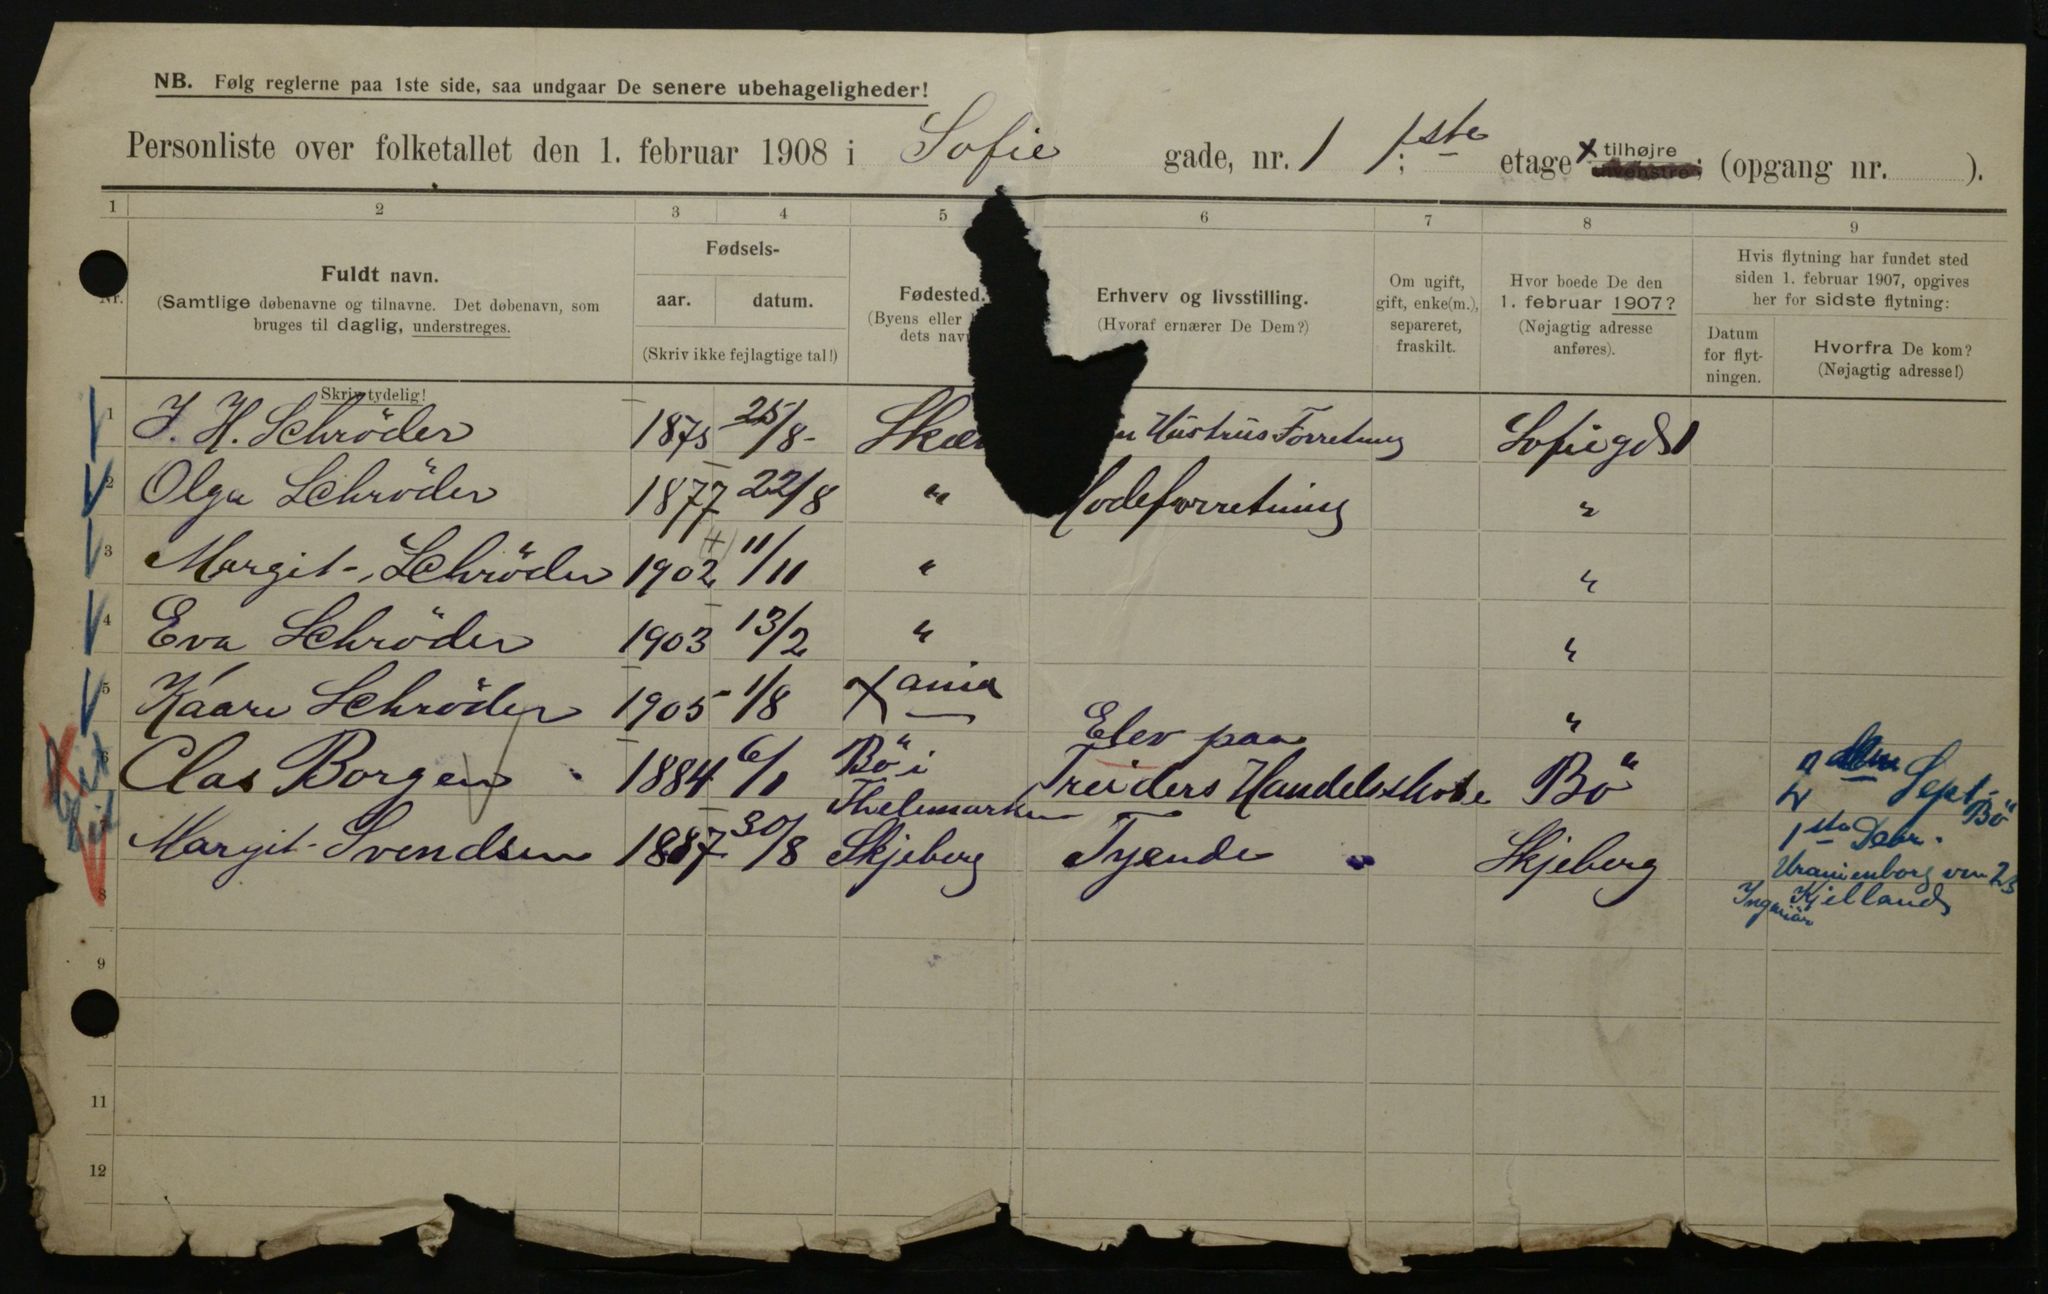 NB. Følg reglerne paa 1ste side, saa undgaar De senere ubehageligheder!
Personliste over folketallet den 1. februar 1908 i Sofie gade, nr. 1 ; 1ste etage x tilhøjre ; (opgang nr. ).
1 2 3 4 5 6 7 8 9
Nr.
Fuldt navn.
(Samtlige døbenavne og tilnavne. Det døbenavn, som
bruges til daglig, understreges.
Skriv tydelig!
Fødsels-
aar. datum.
(Skriv ikke fejlagtige tal!)
Fødested.
(Byens eller
dets nav
Erhverv og livsstilling.
(Hvoraf ernærer De Dem?)
Om ugift,
gift, enke(m.),
separeret,
fraskilt.
Hvor boede De den
1. februar 1907?
(Nøjagtig adresse
anføres).
Hvis flytning har fundet sted
siden 1. februar 1907, opgives
her for sidste flytning:
Datum
for flyt-
ningen.
Hvorfra De kom?
(Nøjagtig adresse!)
1 J. H. Schröder 1875 25/8 Skien Hustrus Forretning Sofiegd 1
2 Olga Schröder 1877 22/8 " Modeforretning "
3 Margit Schröder 1902 11/11 " "
4 Eva Schröder 1903 13/2 " "
5 Kaare Schröder 1905 1/8 Xania "
6 Clas Borgen 1884 6/1 Bö i Thelemarken Elev paa Treiders Handelsskole Bö Sept. Bö
7 Margit Svendsen 1887 30/8 Skjeberg Tyende Skjeberg 1ste Debr.
Uranienborg vn 23
Ingeniör Kjellands
8
9
11
12